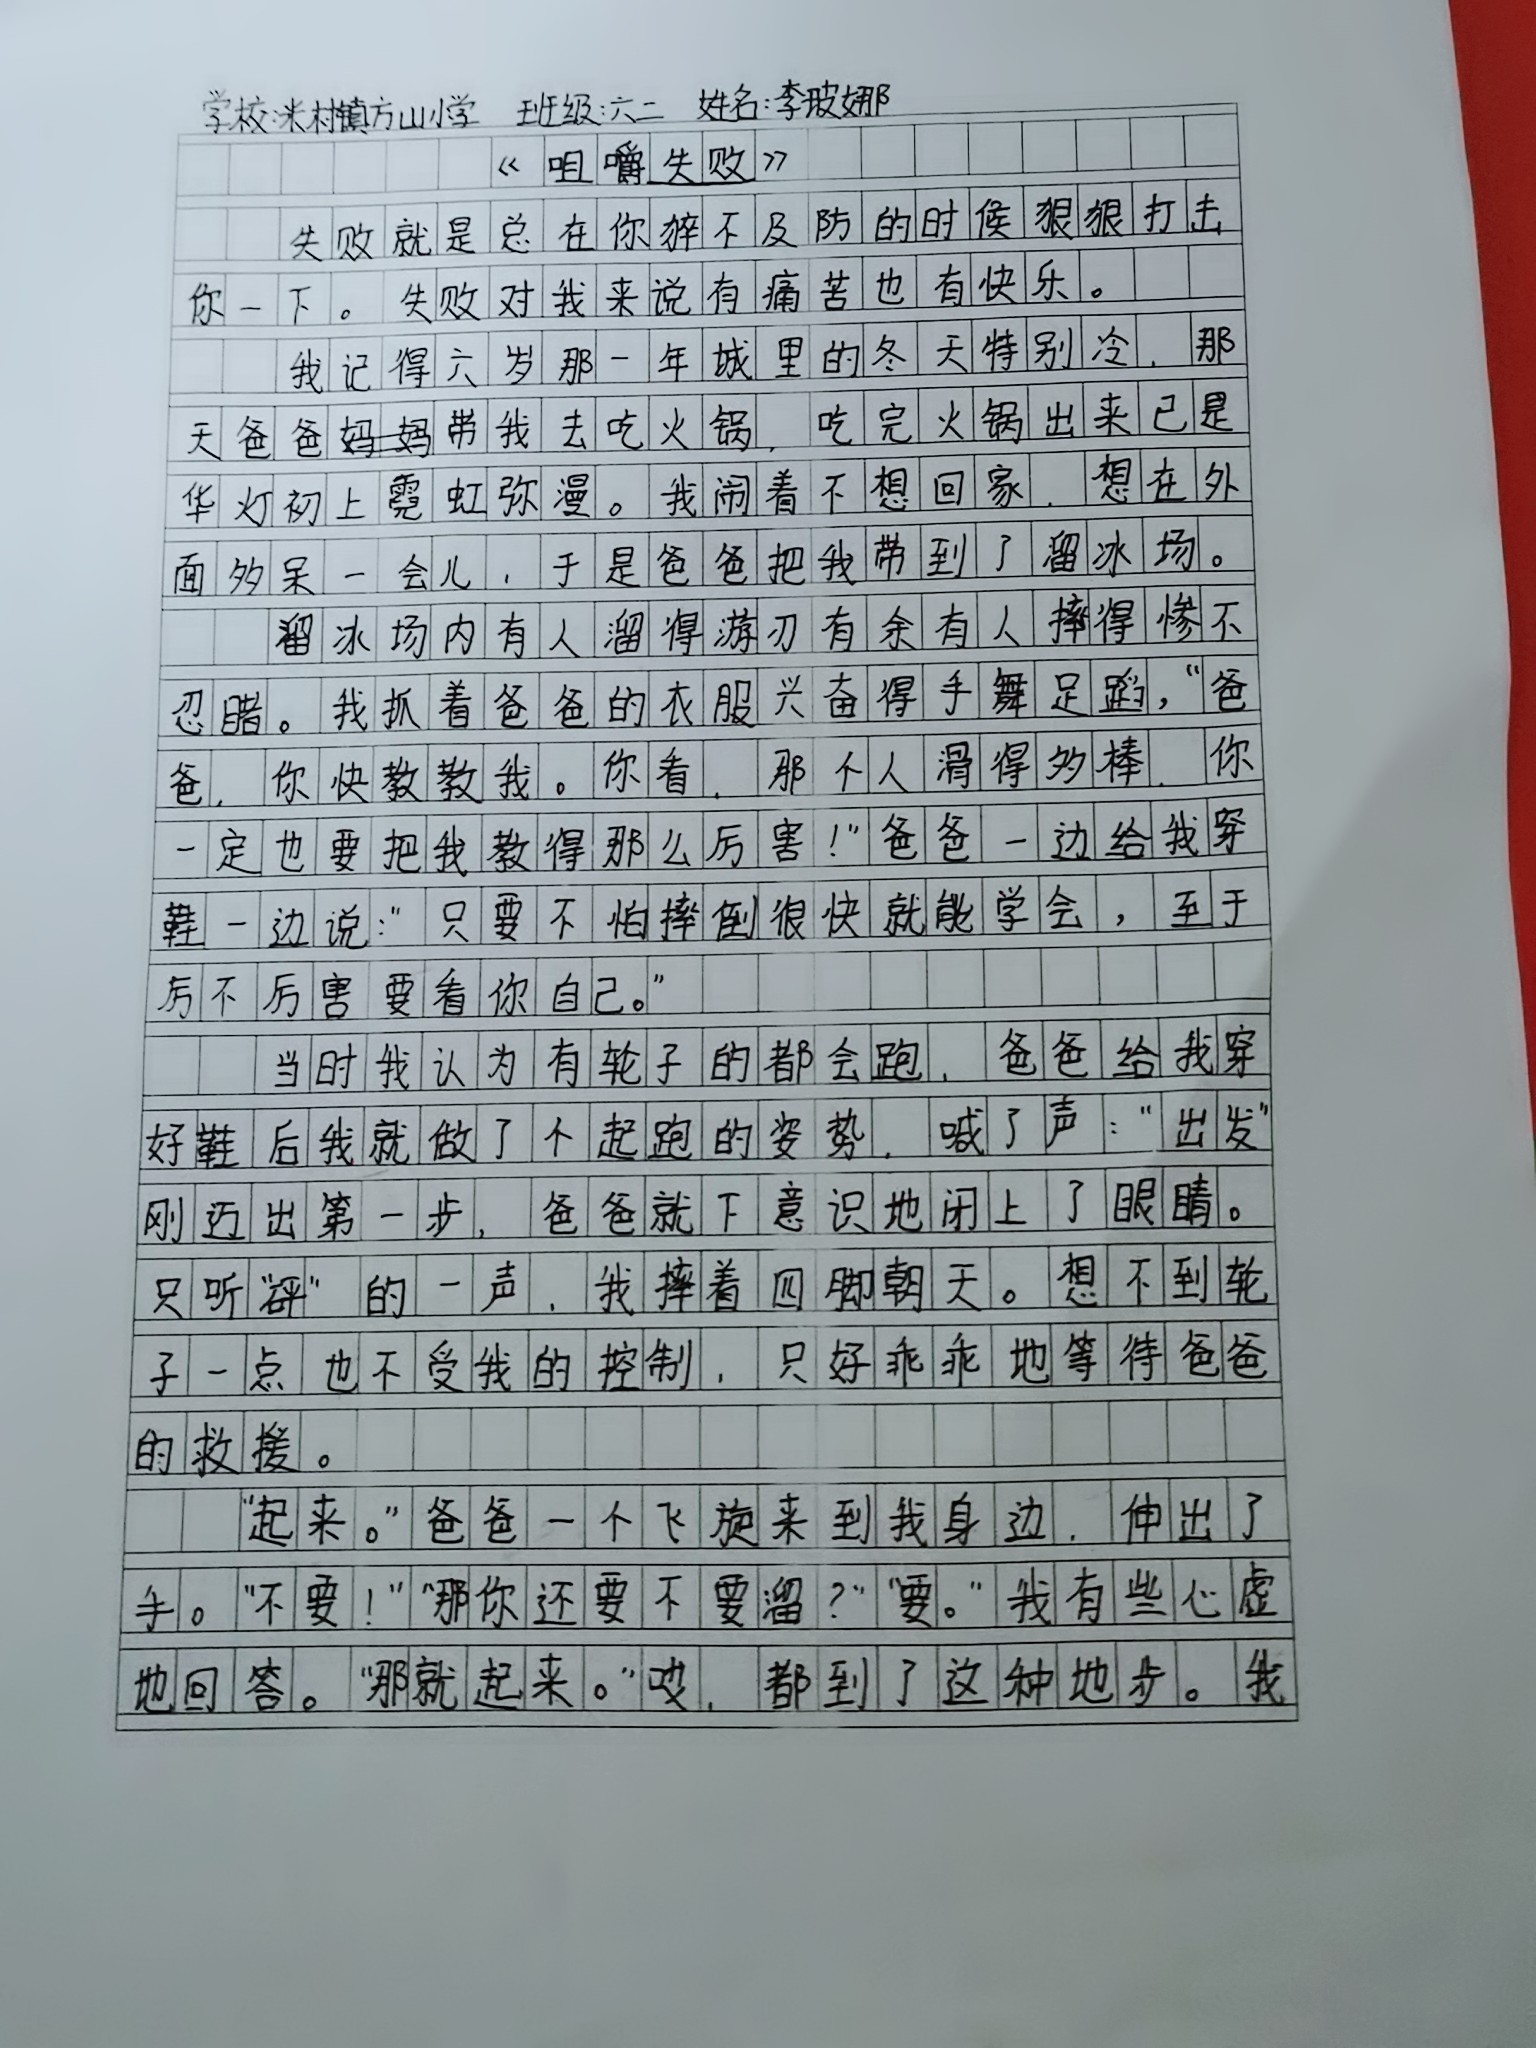 学校:米村镇方山小学 班级:六二 姓名:李玻娜
《咀嚼失败》
失败就是总在你猝不及防的时候狠狠打击
你一下。失败对我来说有痛苦也有快乐。
我记得六岁那一年城里的冬天特别冷,那
天爸爸妈妈带我去吃火锅,吃完火锅出来已是
华灯初上霓虹弥漫。我闹着不想回家,想在外
面多呆一会儿,于是爸爸把我带到了溜冰场。
溜冰场内有人溜得游刃有余有人摔得惨不
忍睹。我抓着爸爸的衣服兴奋得手舞足蹈,“爸
爸,你快教教我。你看,那个人滑得多棒,你
一定也要把我教得那么厉害!”爸爸一边给我穿
鞋一边说:“只要不怕摔倒很快就能学会,至于
厉不厉害要看你自己。”
当时我认为有轮子的都会跑,爸爸给我穿
好鞋后我就做了个起跑的姿势,喊了声:“出发”
刚迈出第一步,爸爸就下意识地闭上了眼睛。
只听“砰”的一声,我摔着四脚朝天。想不到轮
子一点也不受我的控制,只好乖乖地等待爸爸
的救援。
“起来。”爸爸一个飞旋来到我身边,伸出了
手。“不要!”“那你还要不要溜?”“要。”我有些心虚
地回答。“那就起来。”哎,都到了这种地步。我